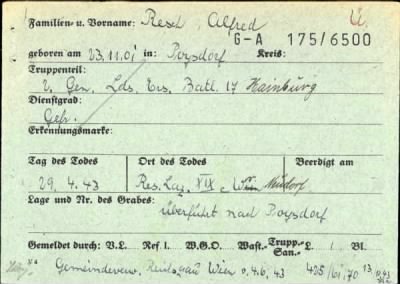 Familien- u. Vorname: Resch, Alfred
G-A 175/6500
geboren am 23.11.01 in: Poysdorf Kreis:
Truppenteil:
2. Gen. Lds. Ers. Batl. 17 Hainburg
Dienstgrad:
Gefr.
Erkennungsmarke:
Tag des Todes Ort des Todes Beerdigt am
29. 4. 43 Res. Laz. XIX
Lage und Nr. des Grabes:
überführt nach Poysdorf
Gemeldet durch: V.L. Ref 1. W.G.O. Wast.- Trupp.- San.- L. Bl.
Gemeindeverw. Wien v. 4.6. 43 405/61.70